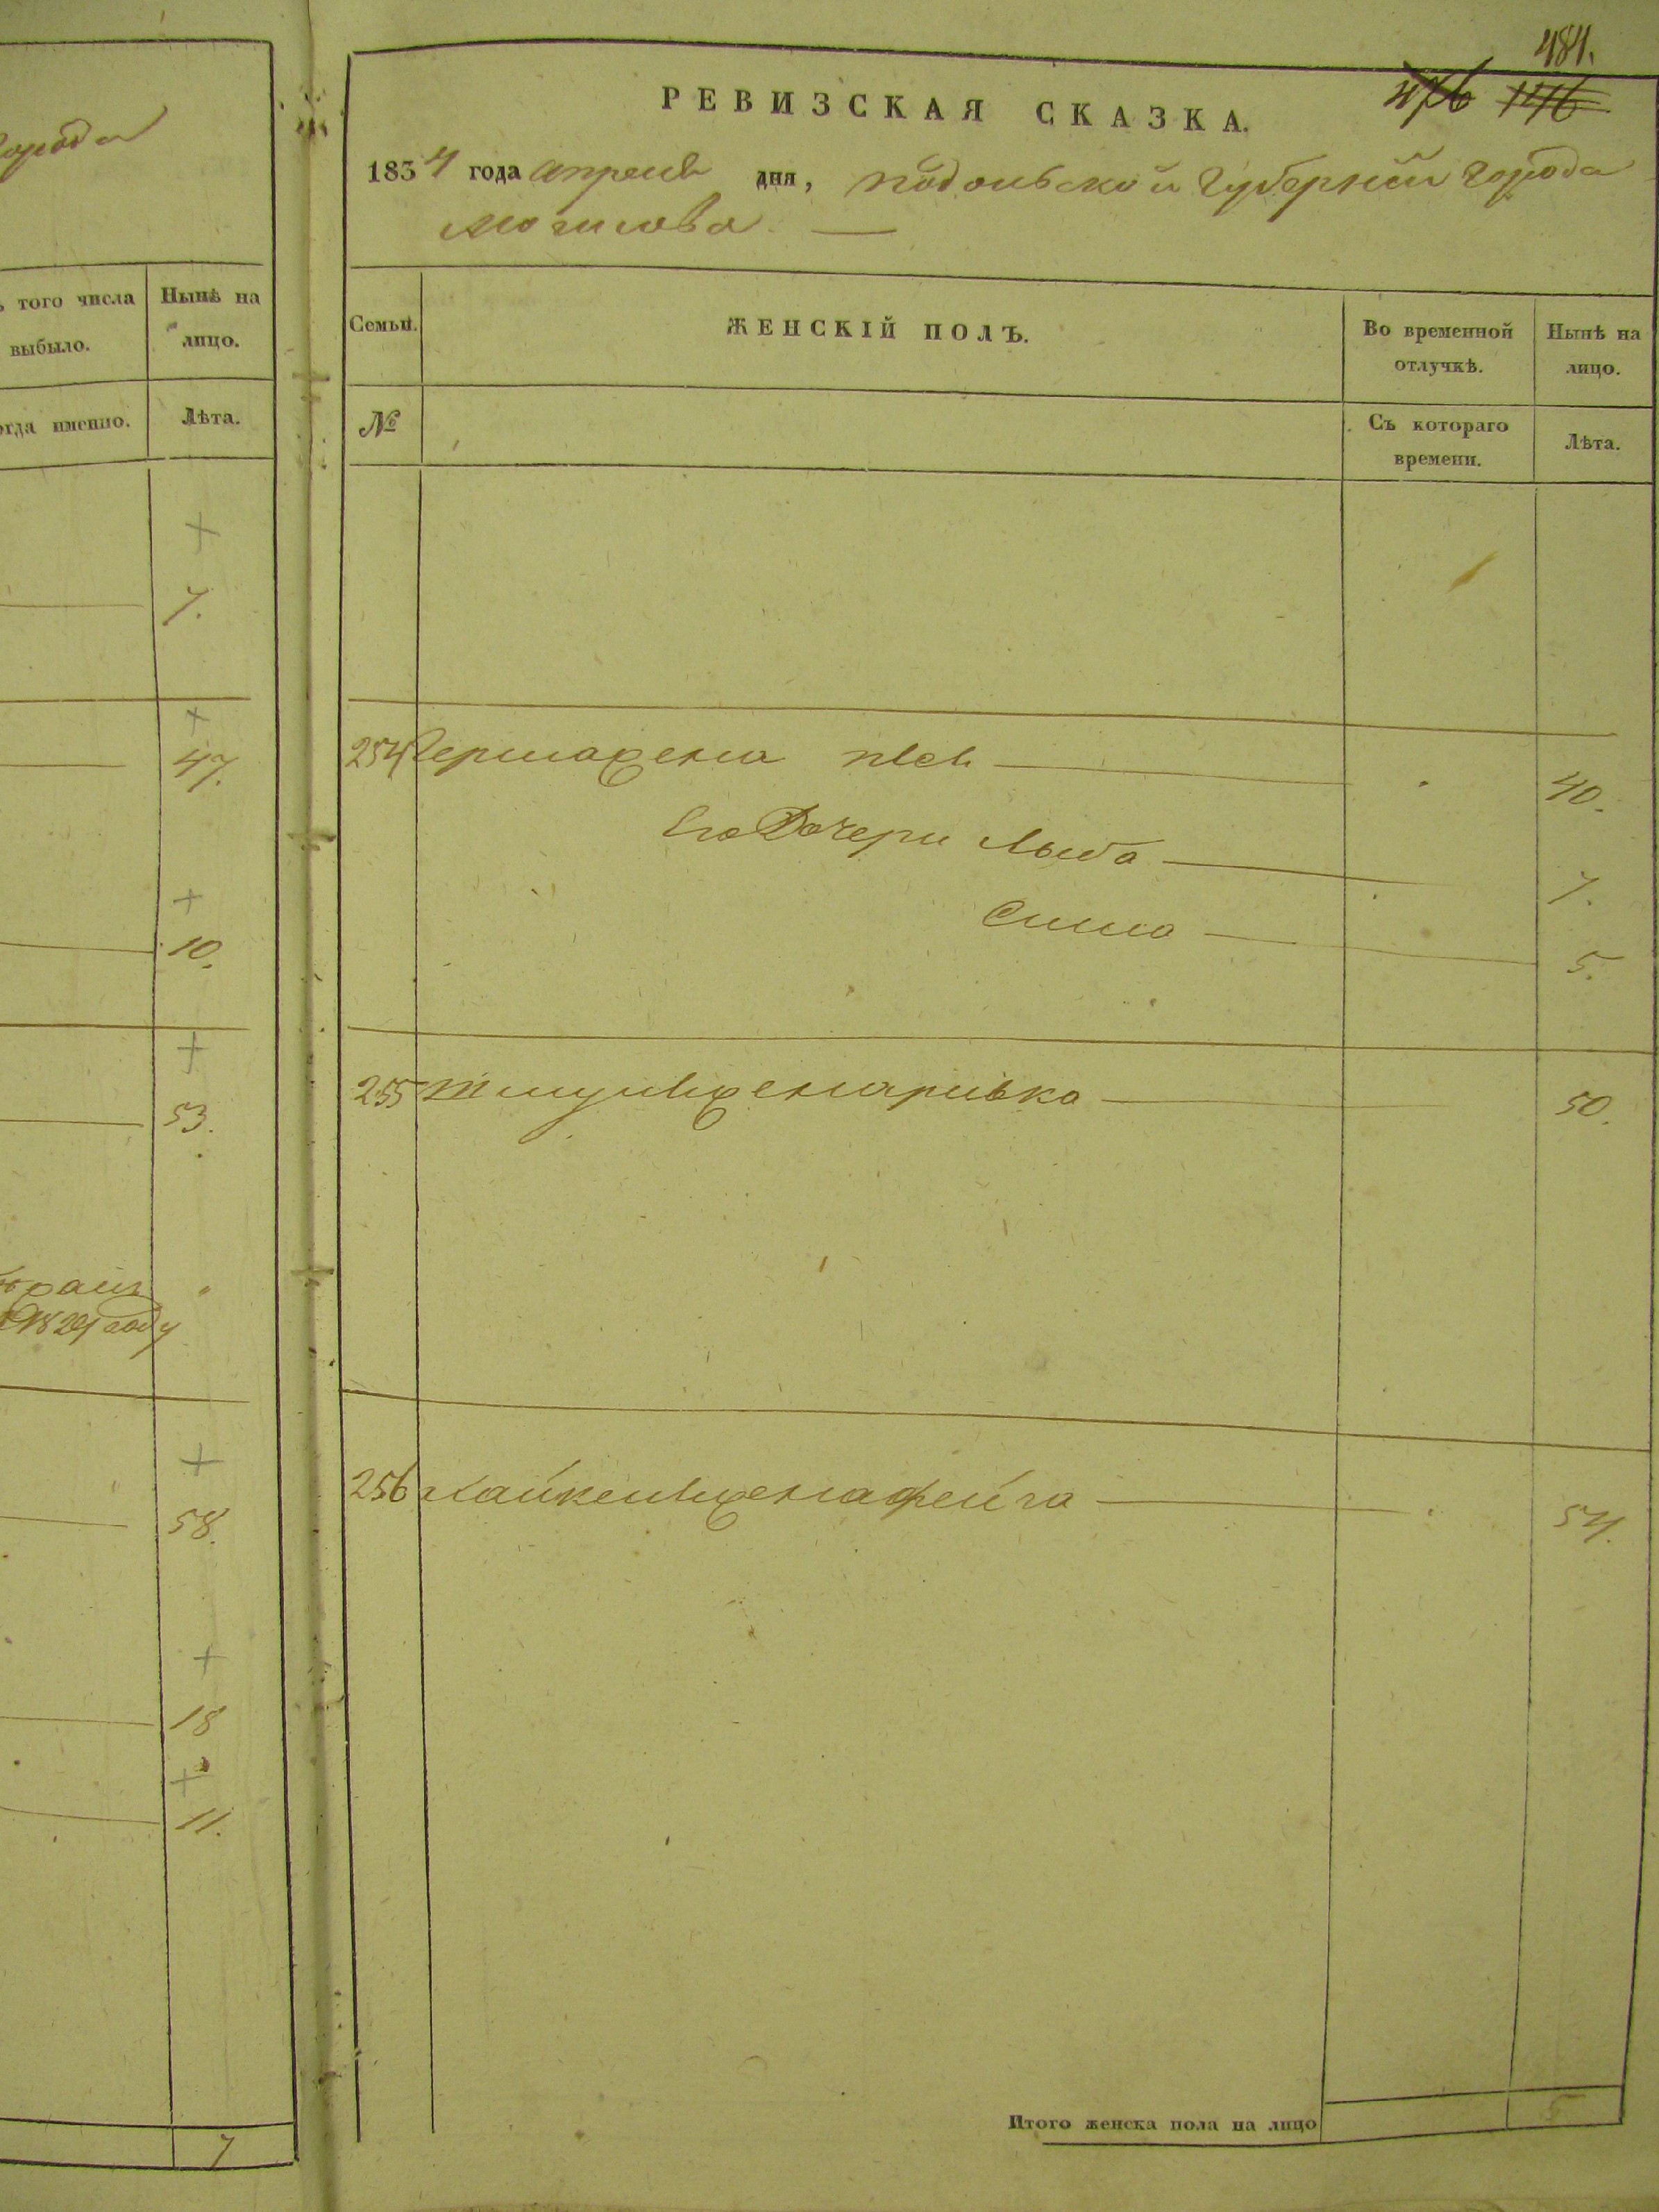 города
того числа
выбыло.
Нынѣ на
лицо.
огда именно.
Лѣта.
7.
47.
10.
53.
1829 году
58.
18
11.
7
484.
476 146
РЕВИЗСКАЯ СКАЗКА.
1834 года апреля дня, Подольской Губернии города
Могилева
Семьи.
ЖЕНСКІЙ ПОЛЪ.
Во временной
отлучкѣ.
Нынѣ на
лицо.
№
Съ котораго
времени.
Лѣта.
254 Герша жена 40.
Его Дочери Лыба 7.
Сима 5.
255 Шмуля жена ривка 50.
256 Хайкеля жена фейга 54.
Итого женска пола на лицо 5